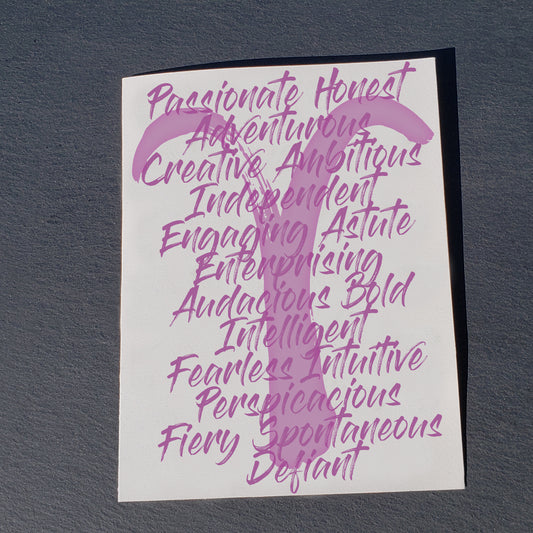 Passionate Honest
Adventurous
Creative Ambitious
Independent
Engaging Astute
Enterprising
Audacious Bold
Intelligent
Fearless Intuitive
Perspicacious
Fiery Spontaneous
Defiant